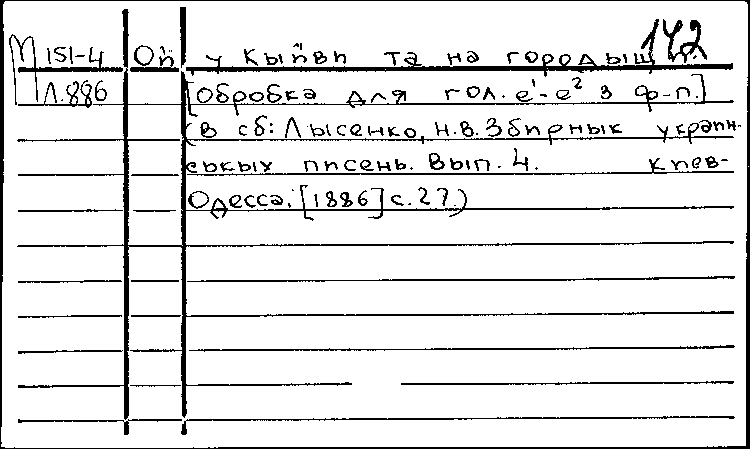 М 151-4 Ой, у Кыйви та на городыщи. 142
Л.886 [Обробка для гол. e¹-e² з ф-п.]
(в сб: Лысенко, Н.В. Збирнык украин-
ськых писень. Вып. 4. Киев-
Одесса, [1886] с. 27.)